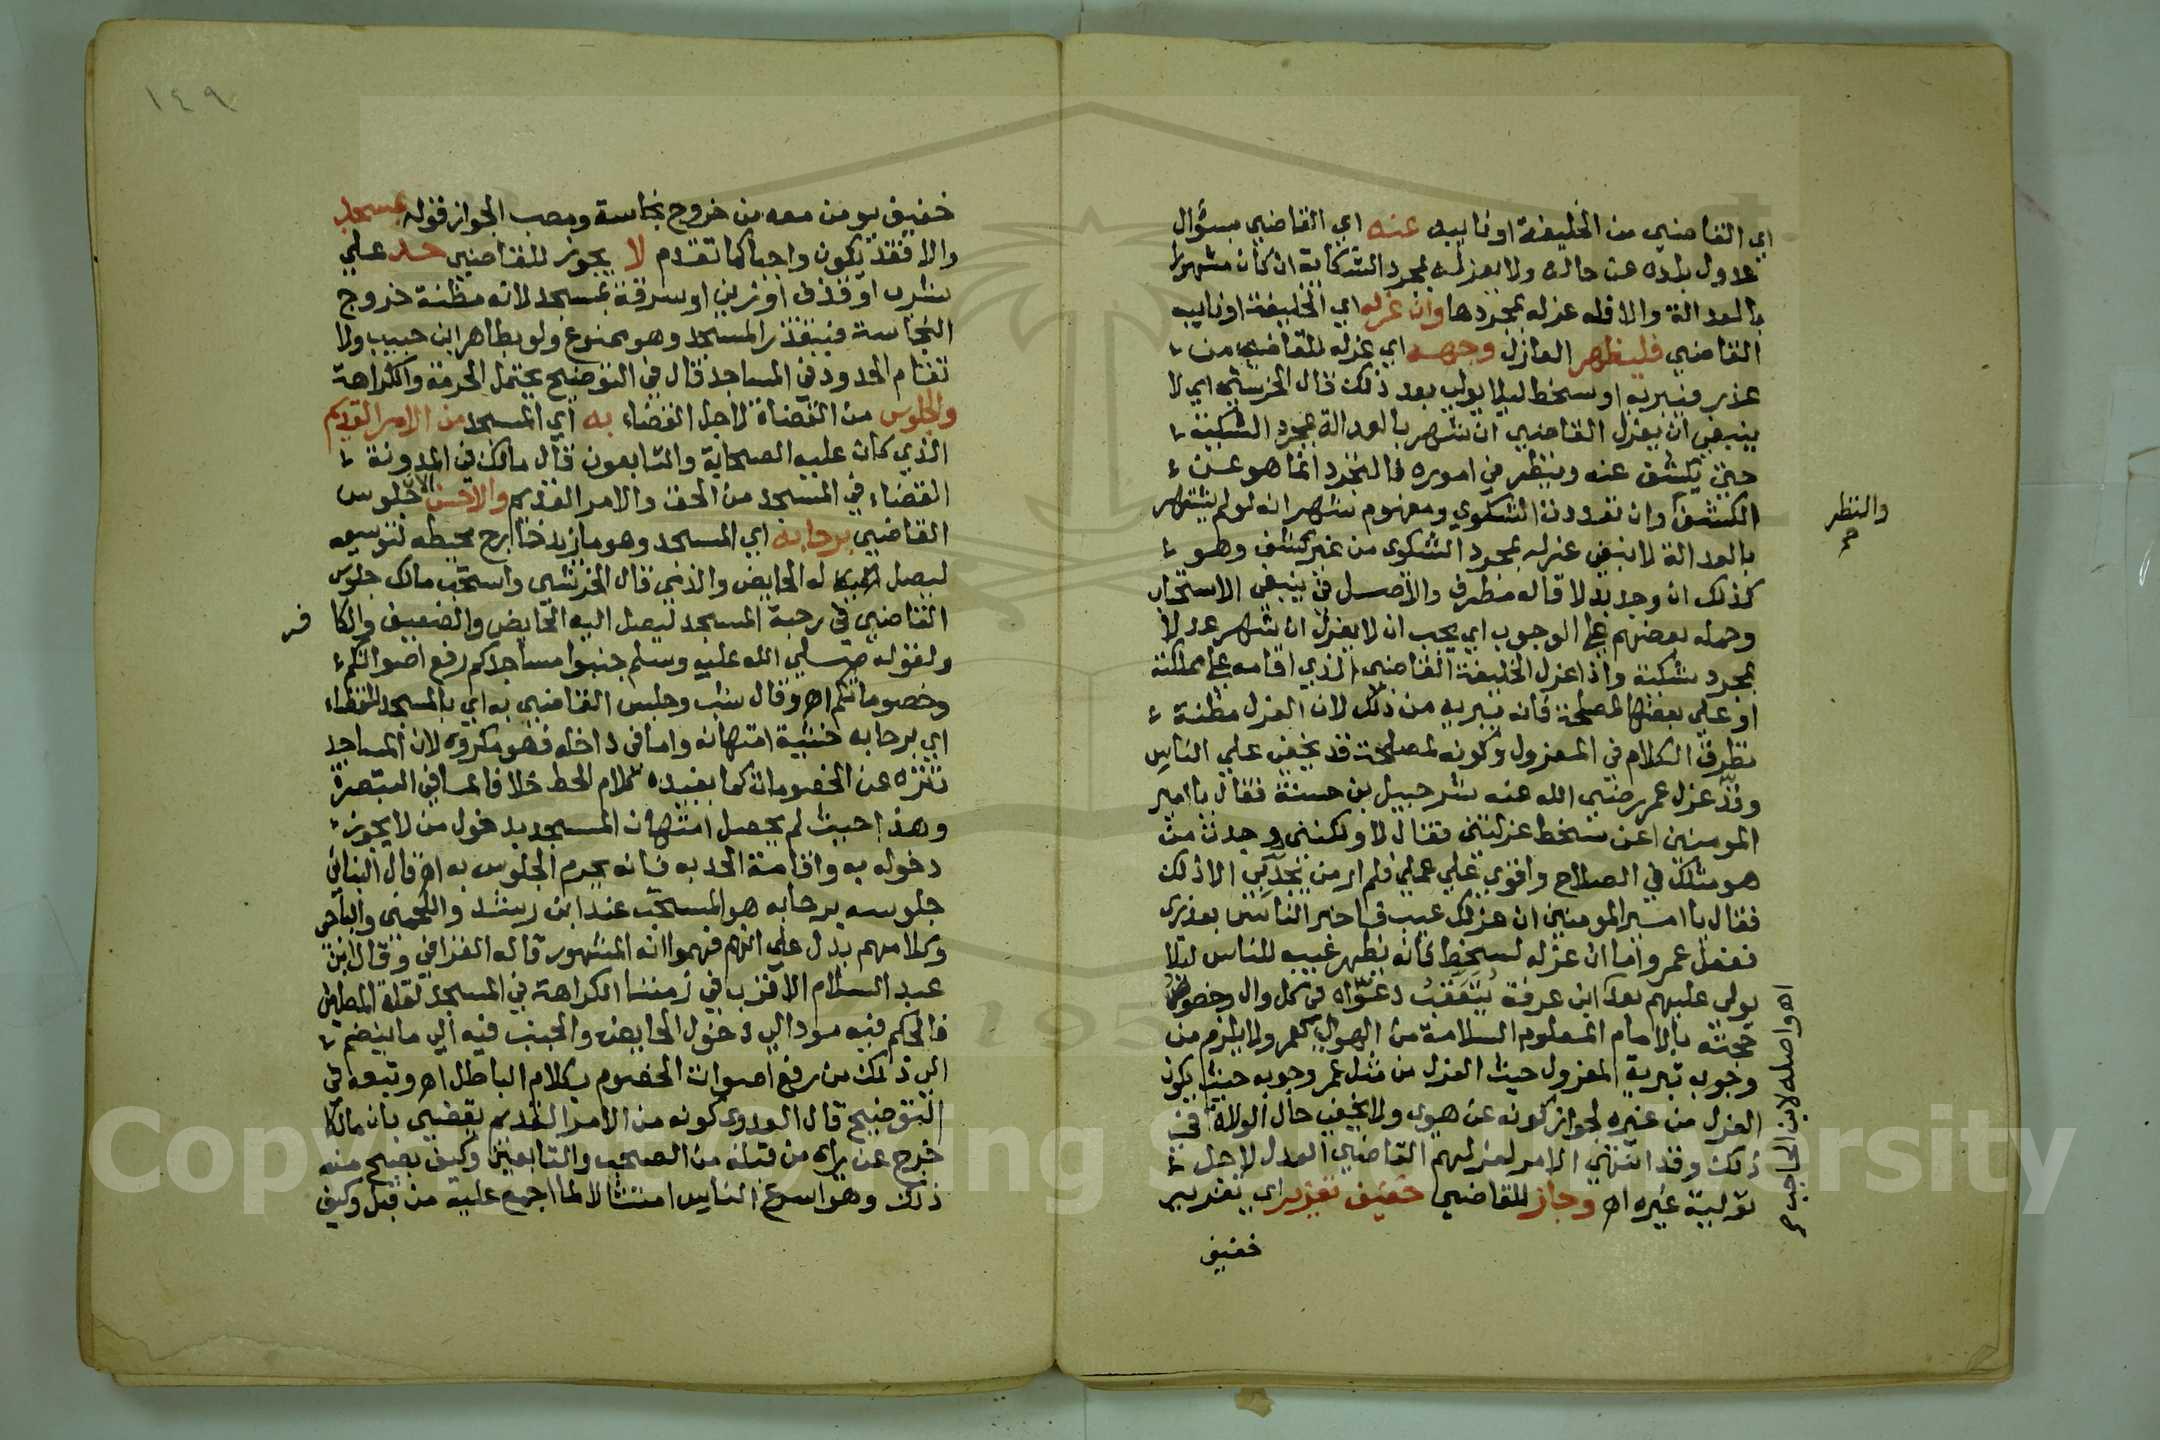 اي القاضي من الخليفة او نايبه عنه اي القاضي بسؤال
عدول بلده عن حاله ولا يعزله بمجرد الشكاية ان كان مشهورا
بالعدالة والا فله عزله بمجردها وان عزله اي الخليفة او نايبه
القاضي فليظهر العازل وجهه اي عزله للقاضي من
عذر فيبريه او سخط ليلا يولى بعد ذلك قال الخرشي اي لا
ينبغي ان يعزل القاضي ان شهر بالعدالة بمجرد الشكية
حتى يكشف عنه وينظر في اموره فالتجرد انما هو عن
الكشف وان تعددت الشكوي ومفهوم شهر انه لو لم يشتهر
والنظر
صح
بالعدالة لا ينبغي عزله بمجرد الشكوى من غير كشف وهو
كذلك ان وجد بدلا قاله مطرف والاصل في ينبغي الاستحباب
وحمله بعضهم على الوجوب اي يجب ان لا يعزل ان شهر عدلا
بمجرد شكية واذا عزل الخليفة القاضي الذي اقامه على مملكة
او على بعضها لمصلحة فانه يبريه من ذلك لان العزل مظنة
تطرق الكلام في المعزول وكونه لمصلحة قد يخفى على الناس
وقد عزل عمر رضي الله عنه شرحبيل بن حسنة فقال يا امير
المومنين اعن سخط عزلتني فقال لا ولكنني وجدت من
هو مثلك في الصلاح واقوى على عملي فلم ار من يجدني الا ذلك
فقال يا امير المومنين ان عزلك عيب فاخبر الناس بعذرى
ففعل عمر واما ان عزله لسخط فانه يظهر عيبه للناس ليلا
يولى عليهم بعد ابن عرفة يتعقب دعواه في كل وال وخصوص
حجته بالامام المعلوم السلامة من الهوى كعمر ولا يلزم من
وجوب تبرية المعزول حيث العزل من مثل عمر وجوبه حيث يكون
العزل من غيره لجواز كونه عن هوى ولا يخفى حال الولاة في
ذلك وقد انتهى الامر لعزلهم القاضي العدل لاجل
تولية غيره اه وجاز للقاضي خفيف تعزير اي تعزير
اه واصله لابن الحاجب صح
خفيف
١٤٩
خفيف يومن معه من خروج نجاسة ومصب الجواز قوله بمسجد
والا فقد يكون واجبا كما تقدم لا يجوز للقاضي حد علي
شرب او قذف او زنى او سرقة بمسجد لانه مظنة خروج
النجاسة فيتقذر المسجد وهو ممنوع ولو بطاهر ابن حبيب ولا
تقام الحدود في المساجد قال في التوضيح يحتمل الحرمة والكراهة
والجلوس من القضاة لاجل القضاء به اي المسجد من الامر القديم
الذي كان عليه الصحابة والتابعون قال مالك في المدونة
القضاء في المسجد من الحق والامر القديم والاحسن الان جلوس
القاضي برحابه اي المسجد وهو ما زيد خارج محيطه لتوسعه
ليصل له الحايض والذمي قال الخرشي واستحب مالك جلوس
القاضي في رحبة المسجد ليصل اليه الحايض والضعيف والكافر
ولقوله صلي الله عليه وسلم جنبوا مساجدكم رفع اصواتكم
وخصوماتكم اه وقال شب وجلس القاضي به اي بالمسجد للقضاء
اي برحابه خشية امتهانه واما في داخله فهو مكروه لان المساجد
تنزه عن الخصومات كما يفيده كلام الحط خلافا لما في التبصرة
وهذا حيث لم يحصل امتهان المسجد بدخول من لا يجوز
دخوله به واقامة الحد به فانه يحرم الجلوس به اه قال البناني
جلوسه برحابه هو المستحب عند ابن رشد واللخمي والباجي
وكلامهم يدل على انهم فهموا انه المشهور قاله القرافي وقال ابن
عبد السلام الاقرب في زمننا الكراهة في المسجد لقلة المصلين
فالحكم فيه مود الى دخول الحايض والجنب فيه الى ما ينضم
الى ذلك من رفع اصوات الخصوم بكلام الباطل اه وتبعه في
التوضيح قال العدوى كونه من الامر القديم يقضي بان مالكا
خرج عن راى من قبله من الصحب والتابعين وكيف يصح منه
ذلك وهو اسرع الناس امتثالا لما اجمع عليه من قبل وكيف